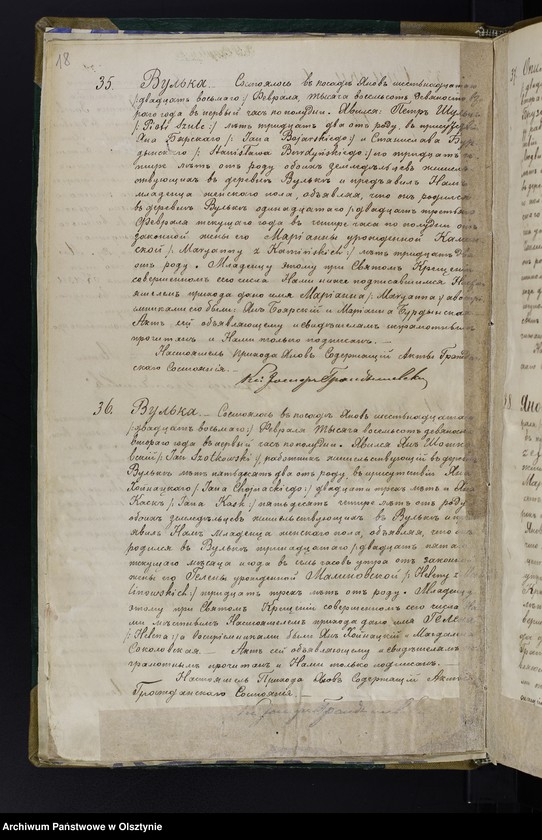 18
35. Вулька. Состоялось въ посадѣ Яновъ шестнадцатаго
/:двадцать восьмаго:/ Февраля, тысяча восемьсотъ девяносто
рого года въ первый часъ по полудни. Явился Петръ Шульц
/: Piotr Szulc :/ лѣтъ тридцать два отъ роду, въ присут
Яна Боярскаго /: Jana Bojarskiego :/ и Станислава Бур
дынскаго /: Stanisława Burdyńskiego :/ по тридцать
тыре лѣтъ отъ роду обоихъ земледѣльцевъ житель
ствующихъ въ деревнѣ Вулькѣ и предъявилъ Намъ
младенца женскаго пола, объявляя, что онъ родился
въ деревнѣ Вулькѣ одинадцатаго /: двадцать третьяго
Февраля текущаго года въ четыре часа по полудни отъ
законной жены его Маріанны урожденной Камин
ской /: Maryanny z Kamińskich :/ лѣтъ тридцать два
отъ роду. Младенцу этому при Святомъ Крещеніи
совершенномъ сего числа Нами нижеподписавшимся Насто
ятелемъ прихода дано имя Маріанна /: Maryanna :/ а воспрі
емниками его были: Янъ Боярскій и Маріанна Бурдынская
Актъ сей объявляющему и свидѣтелямъ неграмотнымъ
прочитанъ и Нами только подписанъ. —
Настоятель Прихода Яновъ Содержащій Акты Граждан
скаго Состоянія. —
36. Вулька. — Состоялось въ посадѣ Яновъ шестнадцатаго
/:двадцать восьмаго:/ Февраля тысяча восемьсотъ девяносто
втораго года въ первый часъ по полудни. Явился Янъ Шотков
скій /: Jan Szotkowski :/ работникъ жительствующій въ деревнѣ
Вулькѣ лѣтъ пятьдесятъ два отъ роду, въ присутствіи Яна
Хойнацкаго /: Jana Chojnackiego :/ двадцати трехъ лѣтъ и Яна
Каскъ /: Jana Kask :/ пятьдесятъ четыре лѣтъ отъ роду
обоихъ земледѣльцевъ жительствующихъ въ Вулькѣ и
явилъ Намъ младенца женскаго пола, объявляя, что онъ
родился въ Вулькѣ тринадцатаго /: двадцать пятаго
текущаго мѣсяца и года въ семь часовъ утра отъ законной
жены его Гелены урожденной Малиновской /: Heleny z Ma
linowskich :/ тридцать трехъ лѣтъ отъ роду. Младенцу
этому при Святомъ Крещеніи совершенномъ сего числа На
ми мѣстнымъ Настоятелемъ прихода дано имя Гелена
/: Helena :/ а воспріемниками были Янъ Хойнацкій и Магдалена
Соколовская — Актъ сей объявляющему и свидѣтелямъ не
грамотнымъ прочитанъ и Нами только подписанъ. —
Настоятель Прихода Яновъ Содержащій Акты
Гражданскаго Состоянія —
Archiwum Państwowe w Olsztynie